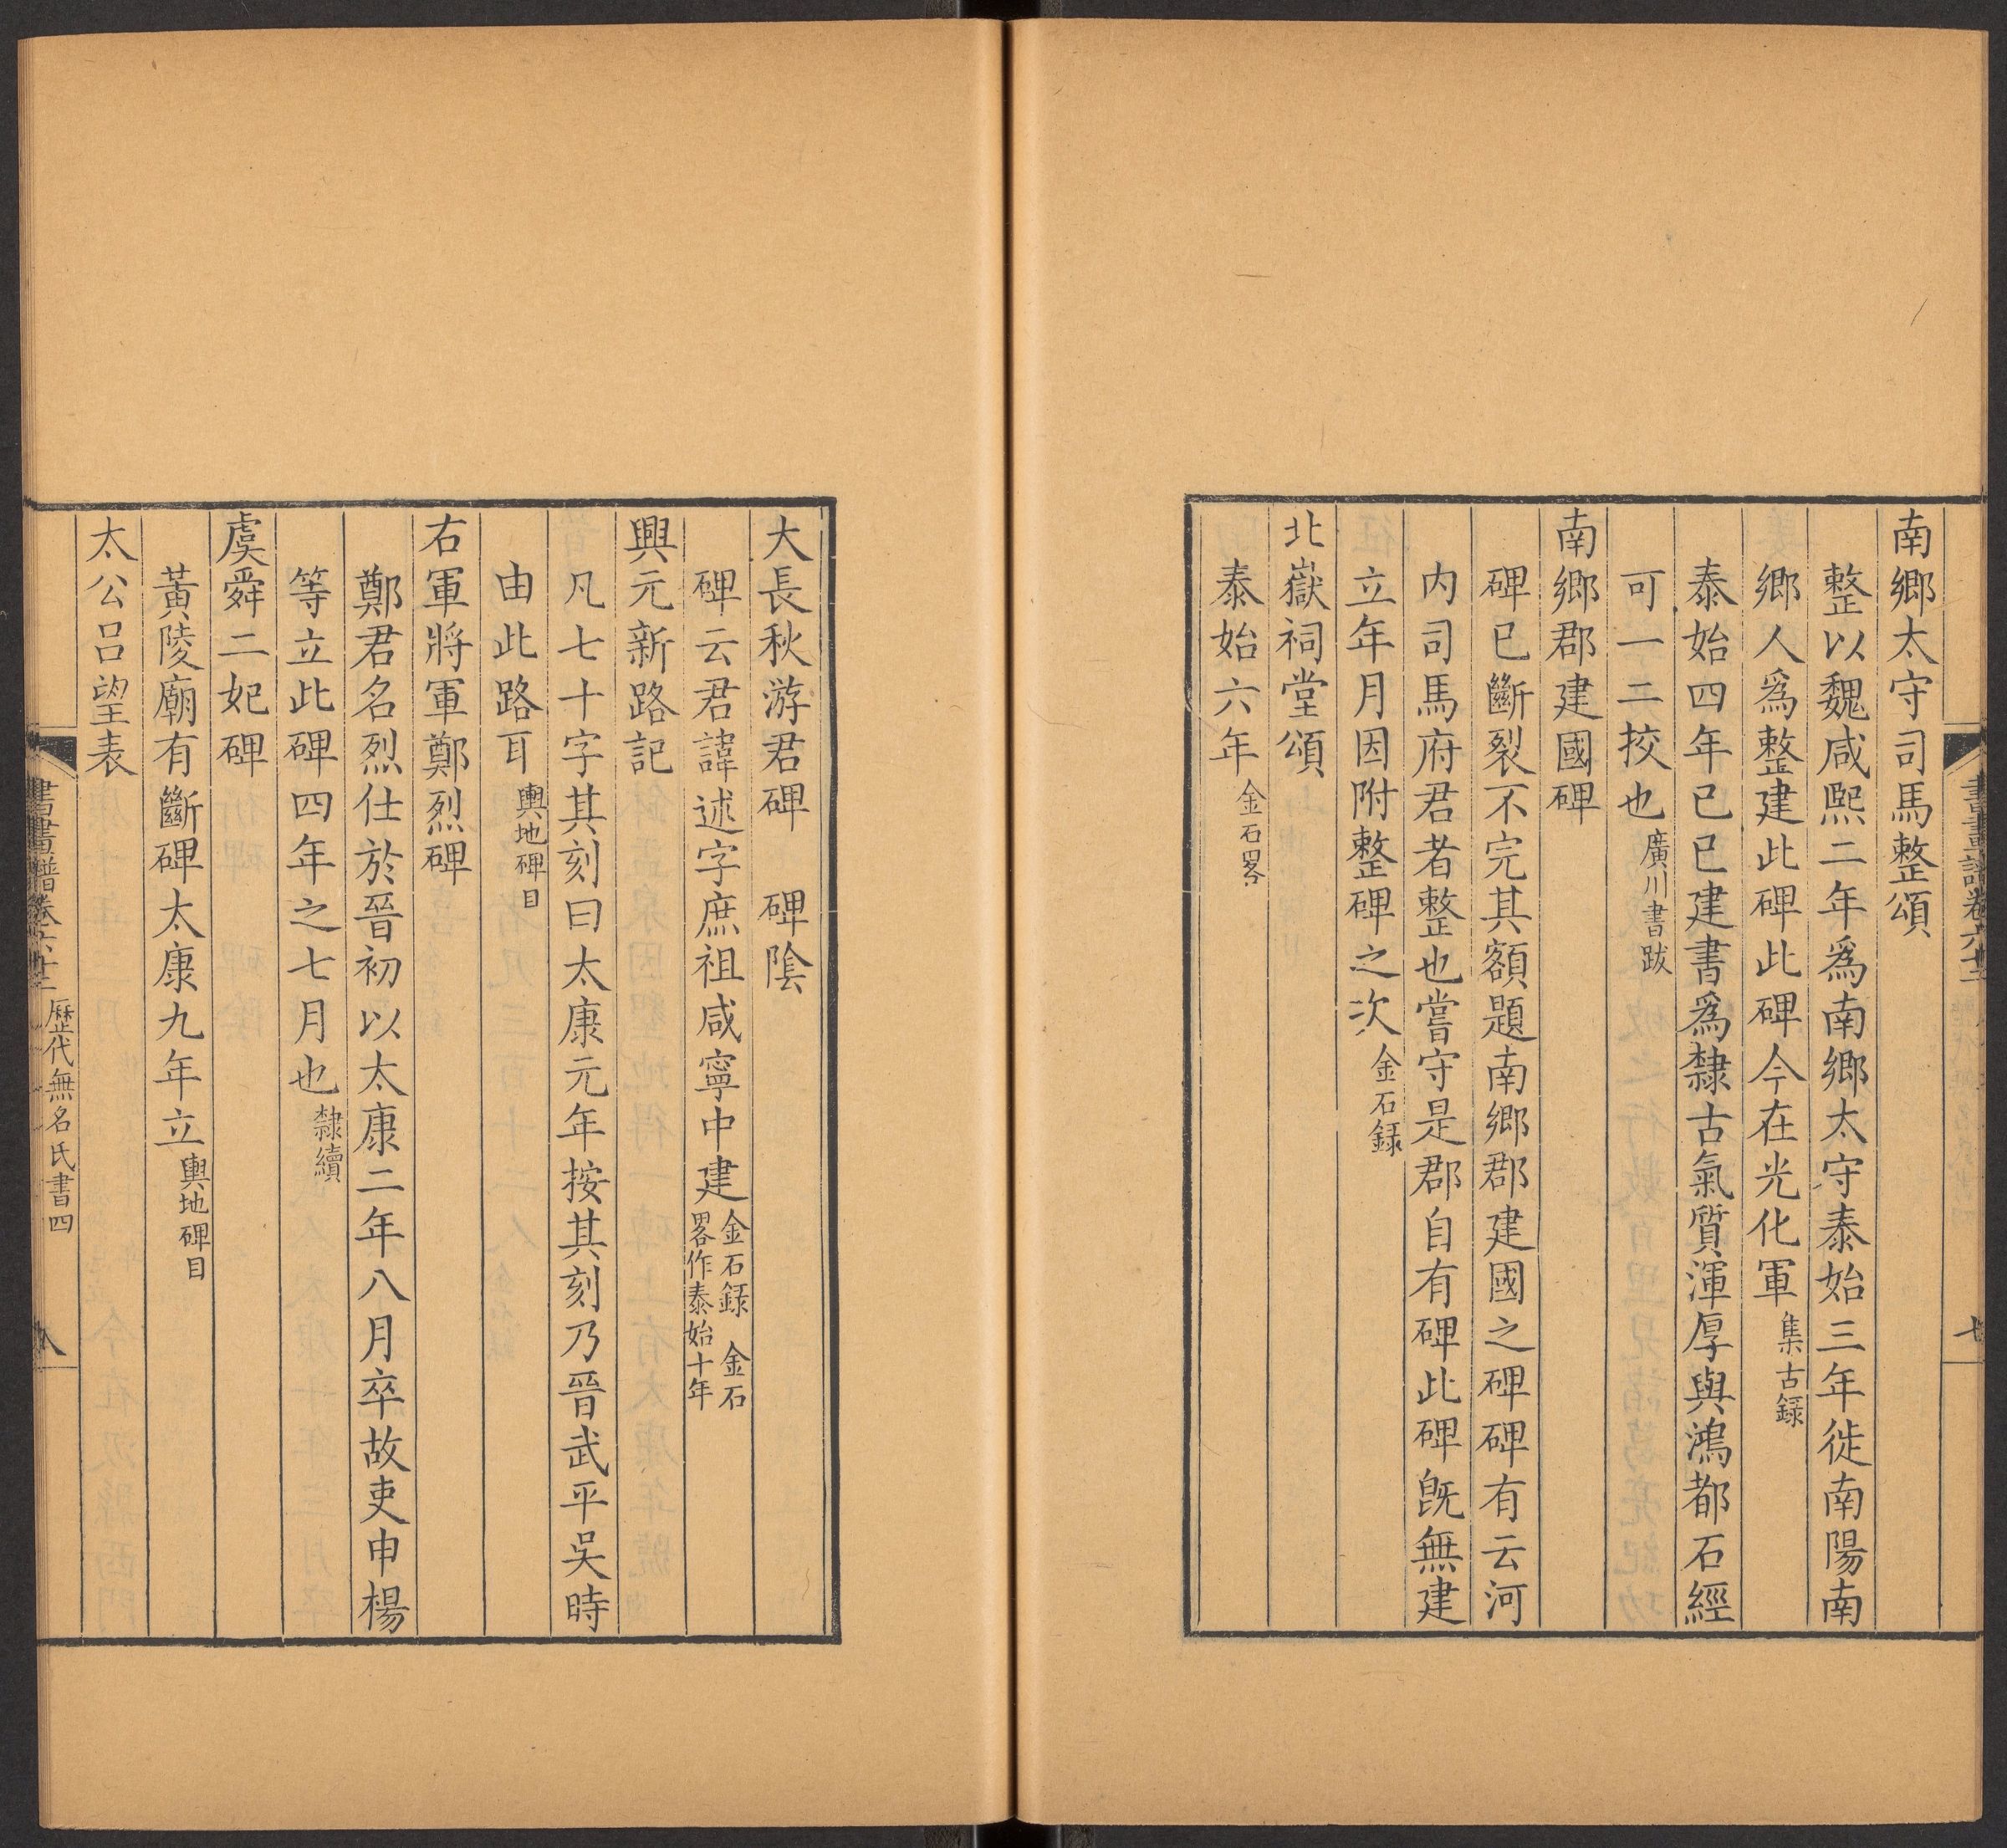 南鄉太守司馬整頌
整以魏咸熙二年爲南鄉太守泰始三年徙南陽南
鄉人爲整建此碑此碑今在光化軍集古録
泰始四年已巳建書爲隸古氣質渾厚與鴻都石經
可一二挍也廣川書跋
南鄉郡建國碑
碑已斷裂不完其額題南鄉郡建國之碑碑有云河
内司馬府君者整也嘗守是郡自有碑此碑旣無建
立年月因附整碑之次金石録
北嶽祠堂頌
泰始六年金石畧
大長秋游君碑 碑陰
碑云君諱述字庶祖咸寧中建金石録 金石畧作泰始十年
興元新路記
凡七十字其刻曰太康元年按其刻乃晉武平吳時
由此路耳輿地碑目
右軍將軍鄭烈碑
鄭君名烈仕於晉初以太康二年八月卒故吏申楊
等立此碑四年之七月也隸續
虞舜二妃碑
黃陵廟有斷碑太康九年立輿地碑目
太公呂望表
書畫譜卷六十二 歷代無名氏書四 八